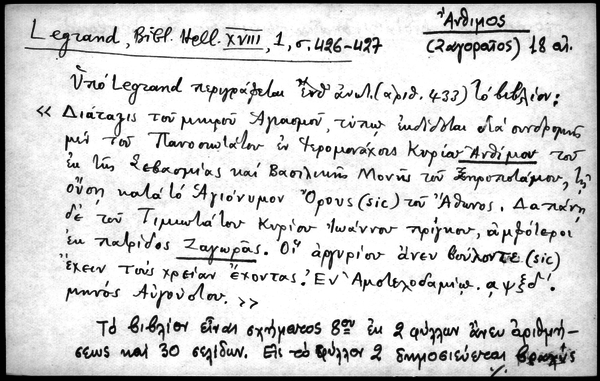 Legrand, Bibl. Hell. XVIII, 1, σ. 426-427
Ἄνθιμος
(Ζαγοραῖος) 18 αἰ.
Ὑπό Legrand περιγράφεται ἔνθ' ἀνωτ. (ἀριθ. 433) τό βιβλίον:
« Διάταξις τοῦ μικροῦ Ἁγιασμοῦ, τύποις ἐκδίδεται διά συνδρομῆς
μέν τοῦ Πανοσιωτάτου ἐν Ἱερομονάχοις Κυρίου Ἀνθίμου τοῦ
ἐκ τῆς Σεβασμίας καί Βασιλικῆς Μονῆς τοῦ Ξηροποτάμου, τῆς
οὔσης κατά τό Ἁγιόνυμον Ὄρους (sic) τοῦ Ἄθωνος. Δαπάνῃ
δέ τοῦ Τιμιωτάτου Κυρίου Ἰωάννου πρίγκου, ἀμφότεροι
ἐκ πατρίδος Ζαγωρᾶς. Οἵ ἀργυρίου ἄνευ βούλοντε (sic)
ἔχειν τούς χρείαν ἔχοντας. Ἐν Ἀμστελοδαμίῳ. αψξδ'.
μηνός Αὐγούστου. »
Τό βιβλίον εἶναι σχήματος 8ου ἐκ 2 φύλλων ἄνευ ἀριθμή-
σεως καί 30 σελίδων. Εἰς τό φύλλον 2 δημοσιεύεται
./.